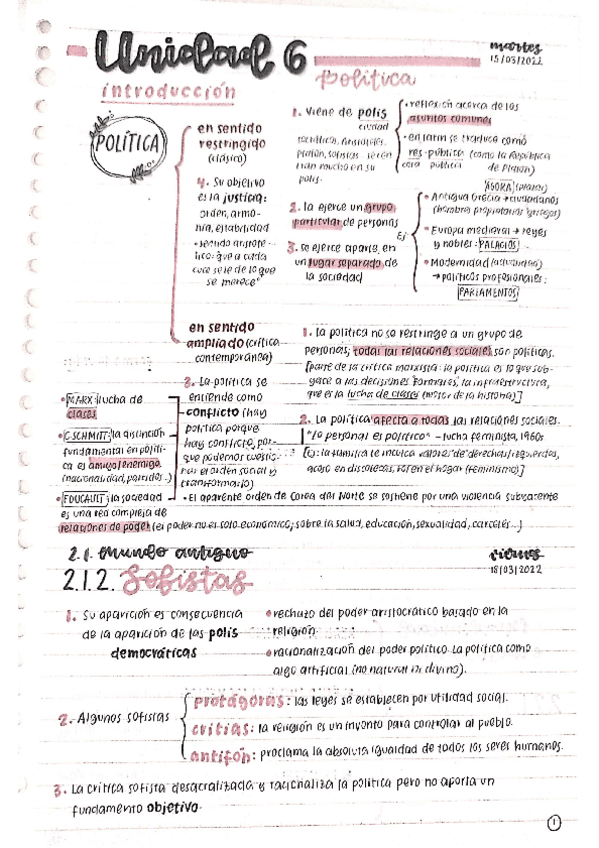 Unidad 6
política
martes
15/03/2022
introducción
POLÍTICA
en sentido
restringido
(clásico)
4. Su objetivo
es la justicia:
orden, armo-
nía, estabilidad
cada
cual se le de lo que
se merece"
1. Viene de polis
ciudad
polis.
• reflexión acerca de los
asuntos comunes
• en latín se traduce como
res-pública (como la República
cosa pública de Platón)
2. la ejerce un grupo
particular de personas
3. se ejerce aparte, en
un lugar separado de
la sociedad
Es
ÁGORA (plaza)
• Antigua Grecia → ciudadanos
(hombres propietarios griegos)
• Europa medieval → reyes
y nobles: PALACIOS
• Modernidad (actualidad)
→ políticos profesionales:
PARLAMENTOS
en sentido
ampliado (crítica
contemporánea)
1. la política no se restringe a un grupo de
personas; todas las relaciones sociales son políticas.
[parte de la crítica marxista: la política es lo que sub-
yace a las decisiones formales, la infraestructura,
que es la lucha de clases (motor de la historia)]
2. La política afecta a todas las relaciones sociales.
"lo personal es político" - lucha feminista, 1960s
[Ej: la familia te inculca valores de derechas/izquierdas,
acoso en discotecas, rol en el hogar (feminismo)]
3. La política se
entiende como
conflicto (hay
política porque
hay conflicto, por-
que podemos cuestio-
nar el orden social y
transformarlo)
• MARX: lucha de
clases
• C. SCHMITT: la distinción
fundamental en políti-
ca es amigo/enemigo.
(nacionalidad, partidos..)
• FOUCAULT: la sociedad
es una red compleja de
relaciones de poder (el poder no es solo económico; sobre la salud, educación, sexualidad, cárceles...)
• El aparente orden de Corea del Norte se sostiene por una violencia subyacente
2.1. mundo antiguo
viernes
18/03/2022
2.1.2. Sofistas
1. Su aparición es consecuencia
de la aparición de las polis
democráticas
• rechazo del poder aristocrático basado en la
religión.
• racionalización del poder político. La política como
algo artificial (no natural ni divino).
2. Algunos sofistas
protágoras: las leyes se establecen por utilidad social.
critias: la religión es un invento para controlar al pueblo.
antifón: proclama la absoluta igualdad de todos los seres humanos.
3. La crítica sofista desacralizada y racionaliza la política pero no aporta un
fundamento objetivo.
1